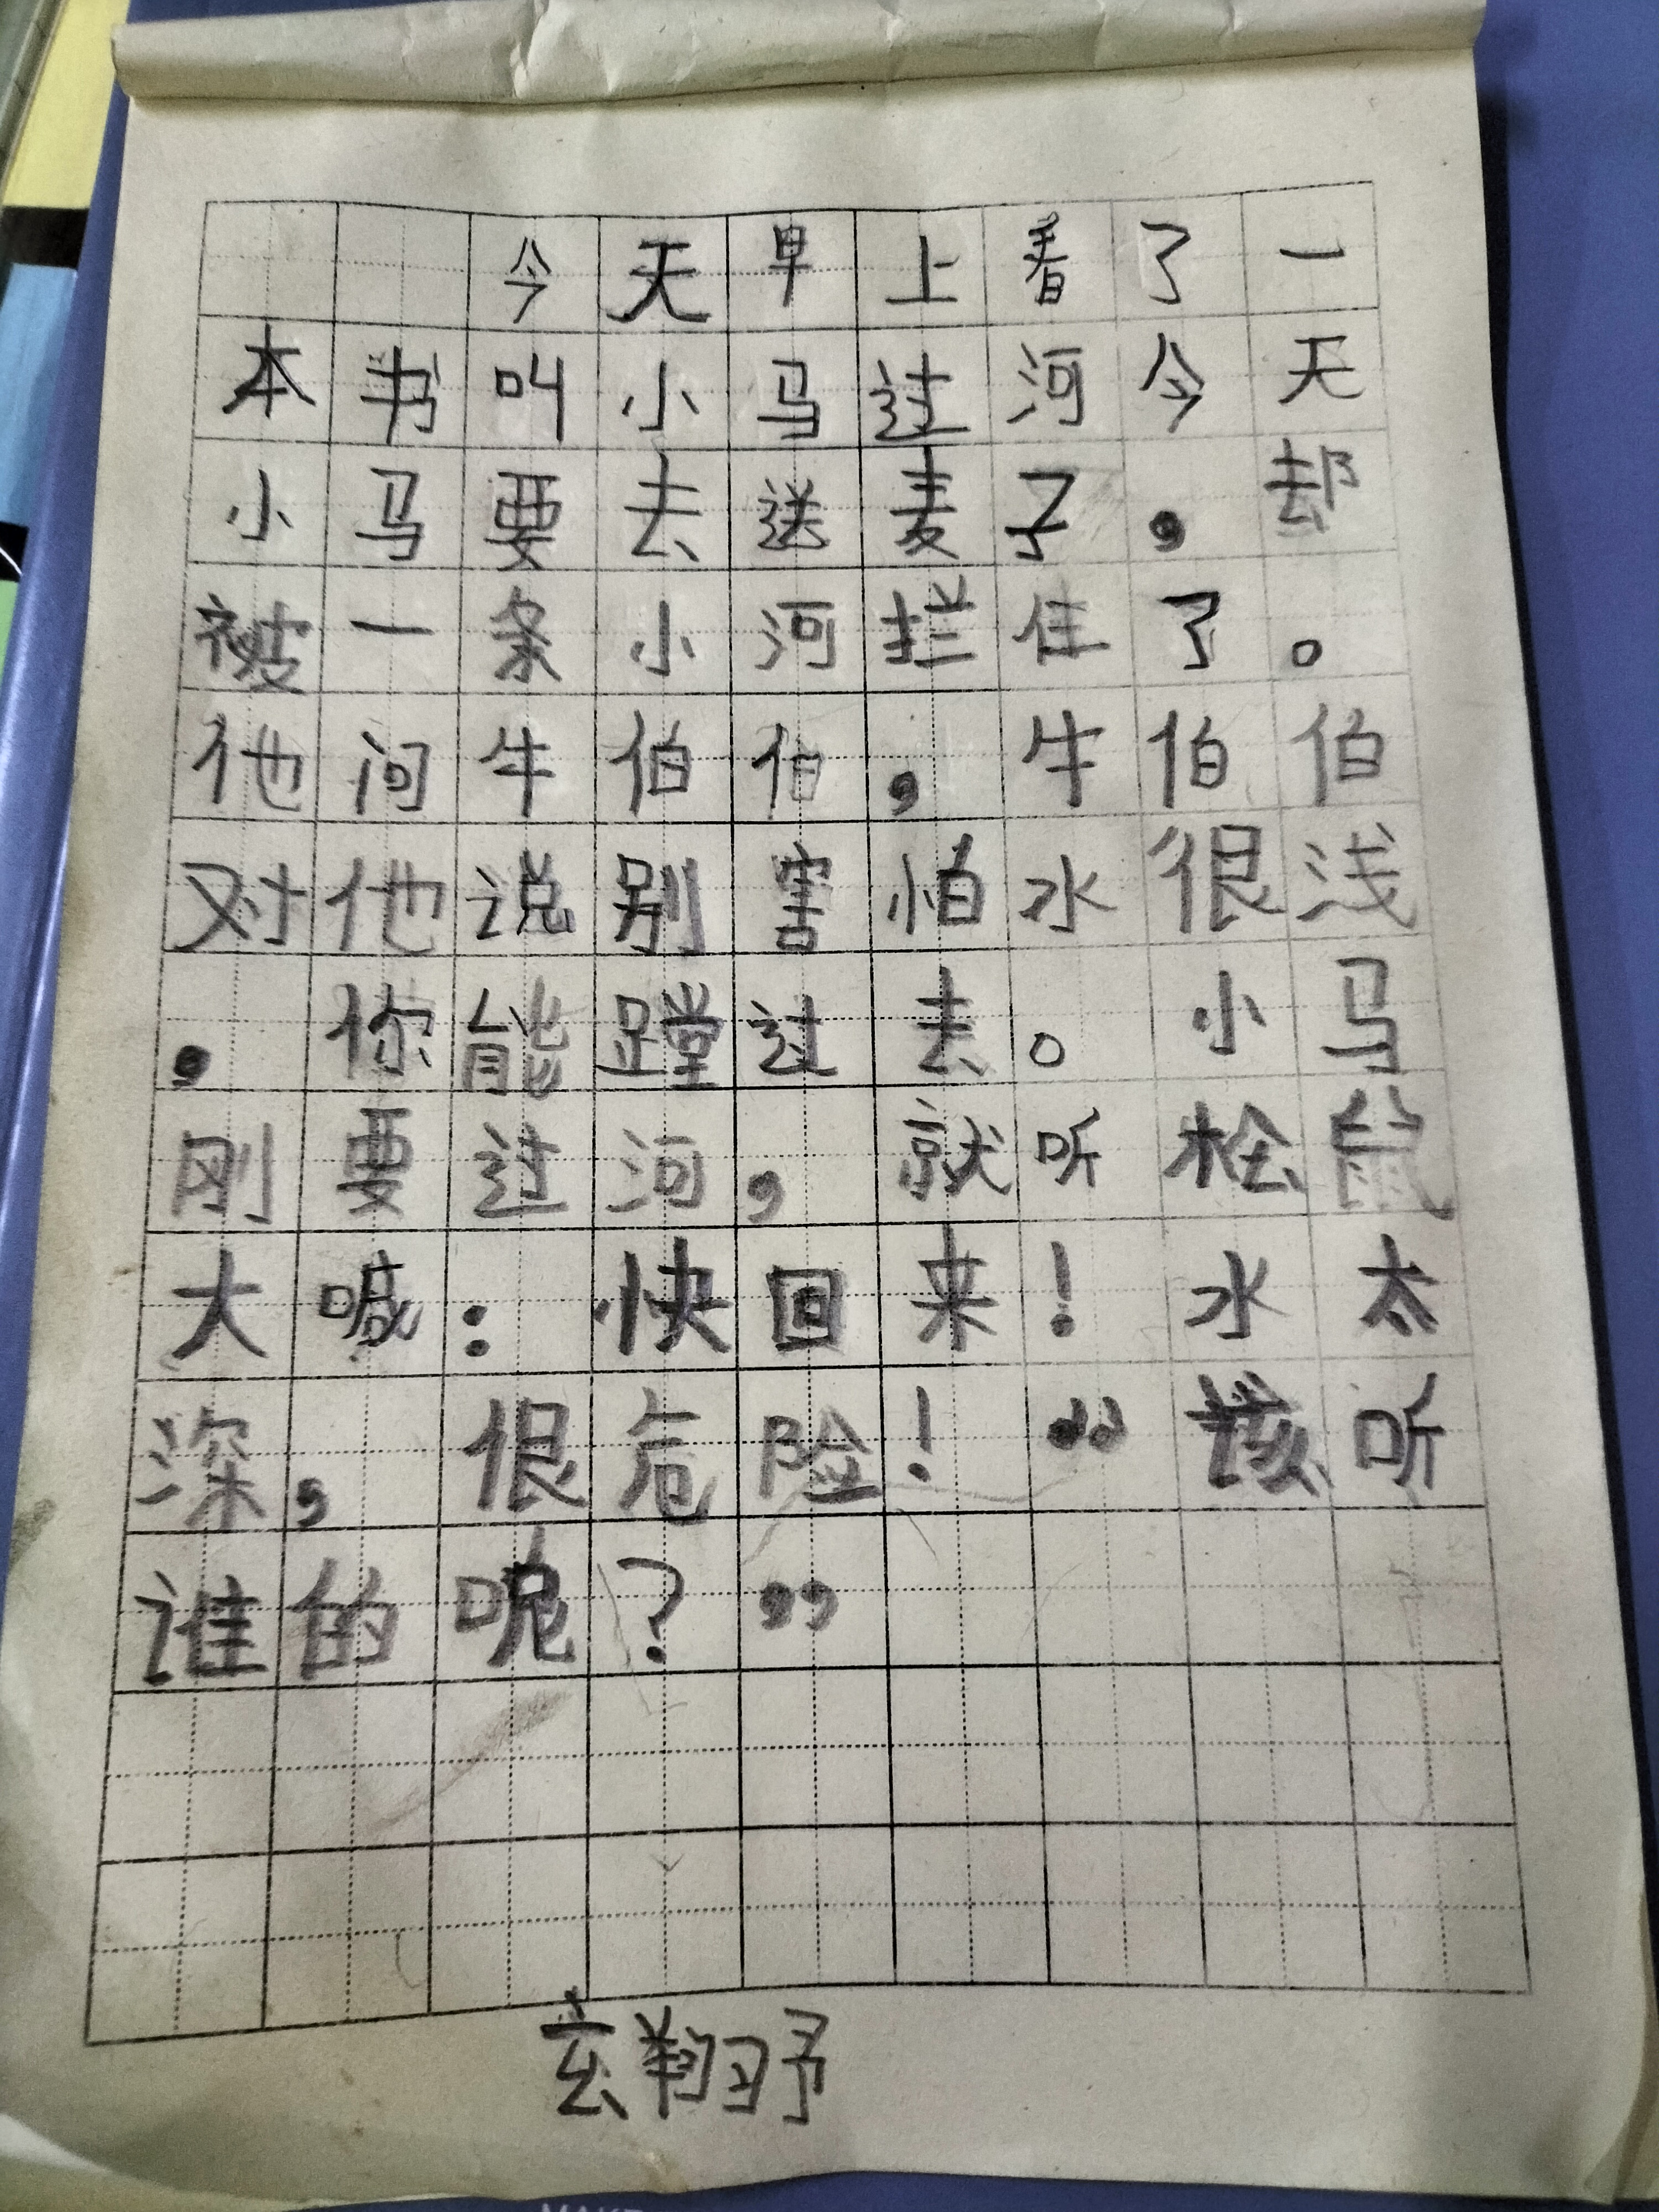 今天早上看了一
本书叫小马过河今天
小马要去送麦子，却
被一条小河拦住了。
他问牛伯伯，牛伯伯
对他说别害怕水很浅
，你能蹚过去。小马
刚要过河，就听松鼠
大喊：快回来！水太
深，很危险！“该听
谁的呢？”
玄翔予